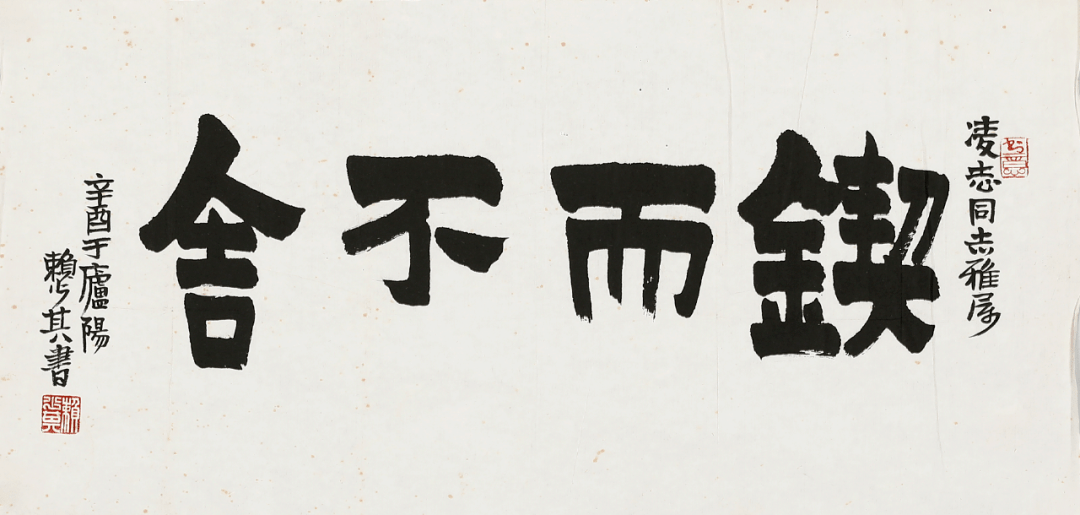 凌志同志雅属
鍥而不舍
辛酉于廬陽
賴少其書
賴少其